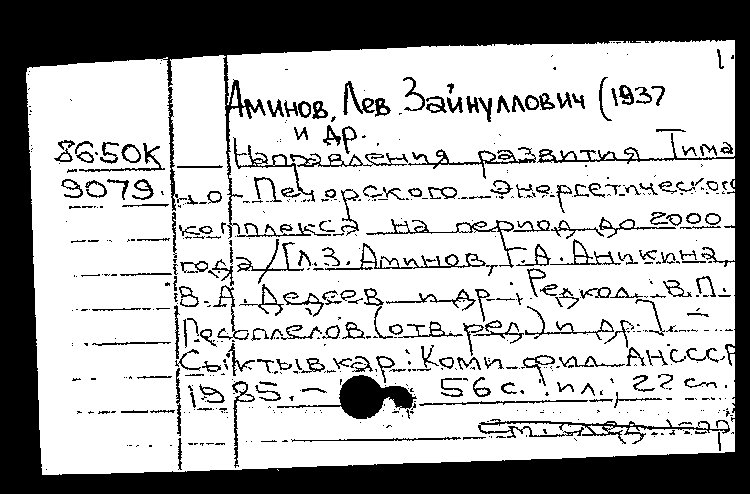 1.
Аминов, Лев Зайнуллович (1937
и др.
86-50К Направления развития Тима
9079. но-Печорского энергетического
комплекса на период до 2000
года / [Л.З. Аминов, Г.А. Аникина,
В.А. Дедеев и др.; Редкол.: В.П.
Подоплелов (отв. ред.) и др.]. –
Сыктывкар: Коми фил. АНСССР
1985. – 56 с.: ил.; 22 см.
См. след. кар